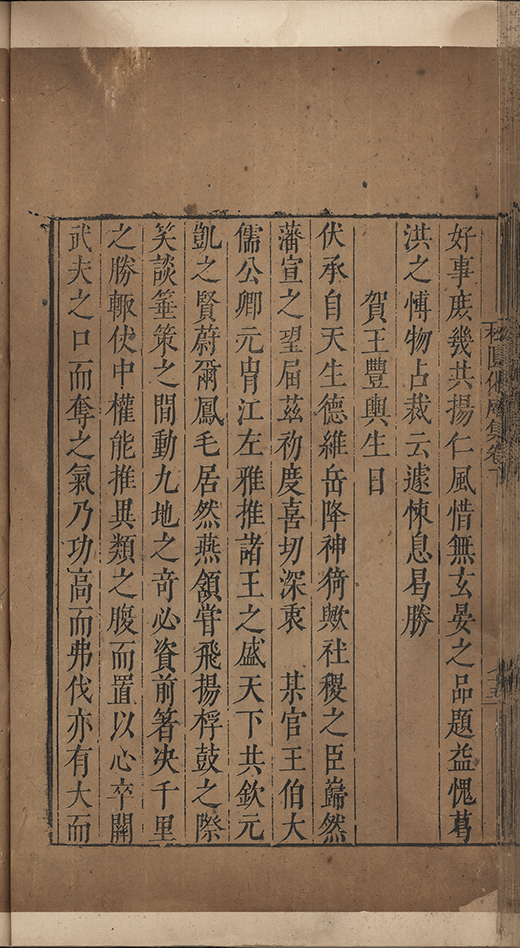 好事庶幾共揚仁風惜無玄晏之品題益愧葛
洪之愽物占裁云遽悚息曷勝
賀王豐輿生日
伏承自天生德維岳降神猗歟社稷之臣巋然
藩宣之望屆茲初度喜切深衷 某官王伯大
儒公卿元胄江左雅推諸王之盛天下共欽元
凱之賢蔚爾鳳毛居然燕頷甞飛揚桴鼓之際
笑談箠策之間動九地之奇必資前箸决千里
之勝輙伏中權能推異類之腹而置以心卒關
武夫之口而奪之氣乃功高而弗伐亦有大而